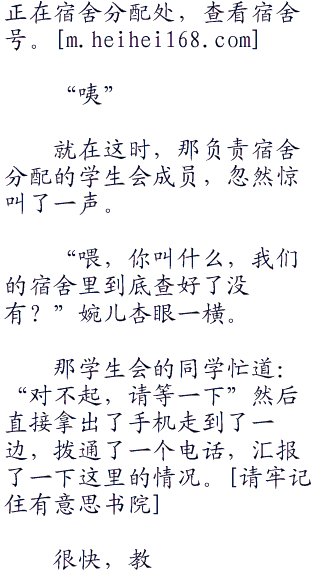 正在宿舍分配处，查看宿舍
号。[m.heihei168.com]
“咦”
就在这时，那负责宿舍
分配的学生会成员，忽然惊
叫了一声。
“喂，你叫什么，我们
的宿舍里到底查好了没
有？”婉儿杏眼一横。
那学生会的同学忙道：
“对不起，请等一下”然后
直接拿出了手机走到了一
边，拨通了一个电话，汇报
了一下这里的情况。[请牢记
住有意思书院]
很快，教